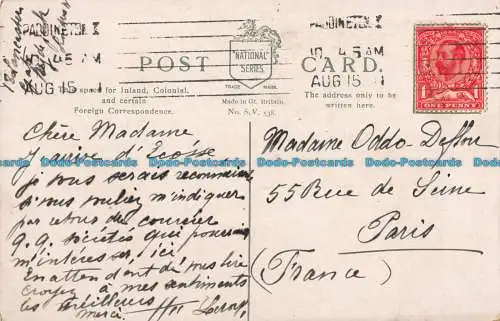 PADDINGTON
10. 45 AM
AUG 15 11
PADDINGTON
10. 45 AM
AUG 15 11
POST
CARD.
NATIONAL
SERIES
TRADE MARK
space for Inland, Colonial,
and certain
Foreign Correspondence.
Made in Gt. Britain.
No. S.V. 538.
The address only to be
written here.
ONE PENNY
Chère Madame
J'arrive d'Ecosse
Je vous serais reconnaissant
si vous vouliez m'indiquer
par retour du courrier
q.q. sociétés que pourraient
m'intéresser ici
En attendant de vous lire
croyez à mes sentiments
les meilleurs
merci.
Madame Oddo-Deflou
55 Rue de Seine
Paris
(France)
Dodo-Postcards Dodo-Postcards Dodo-Postcards Dodo-Postcards